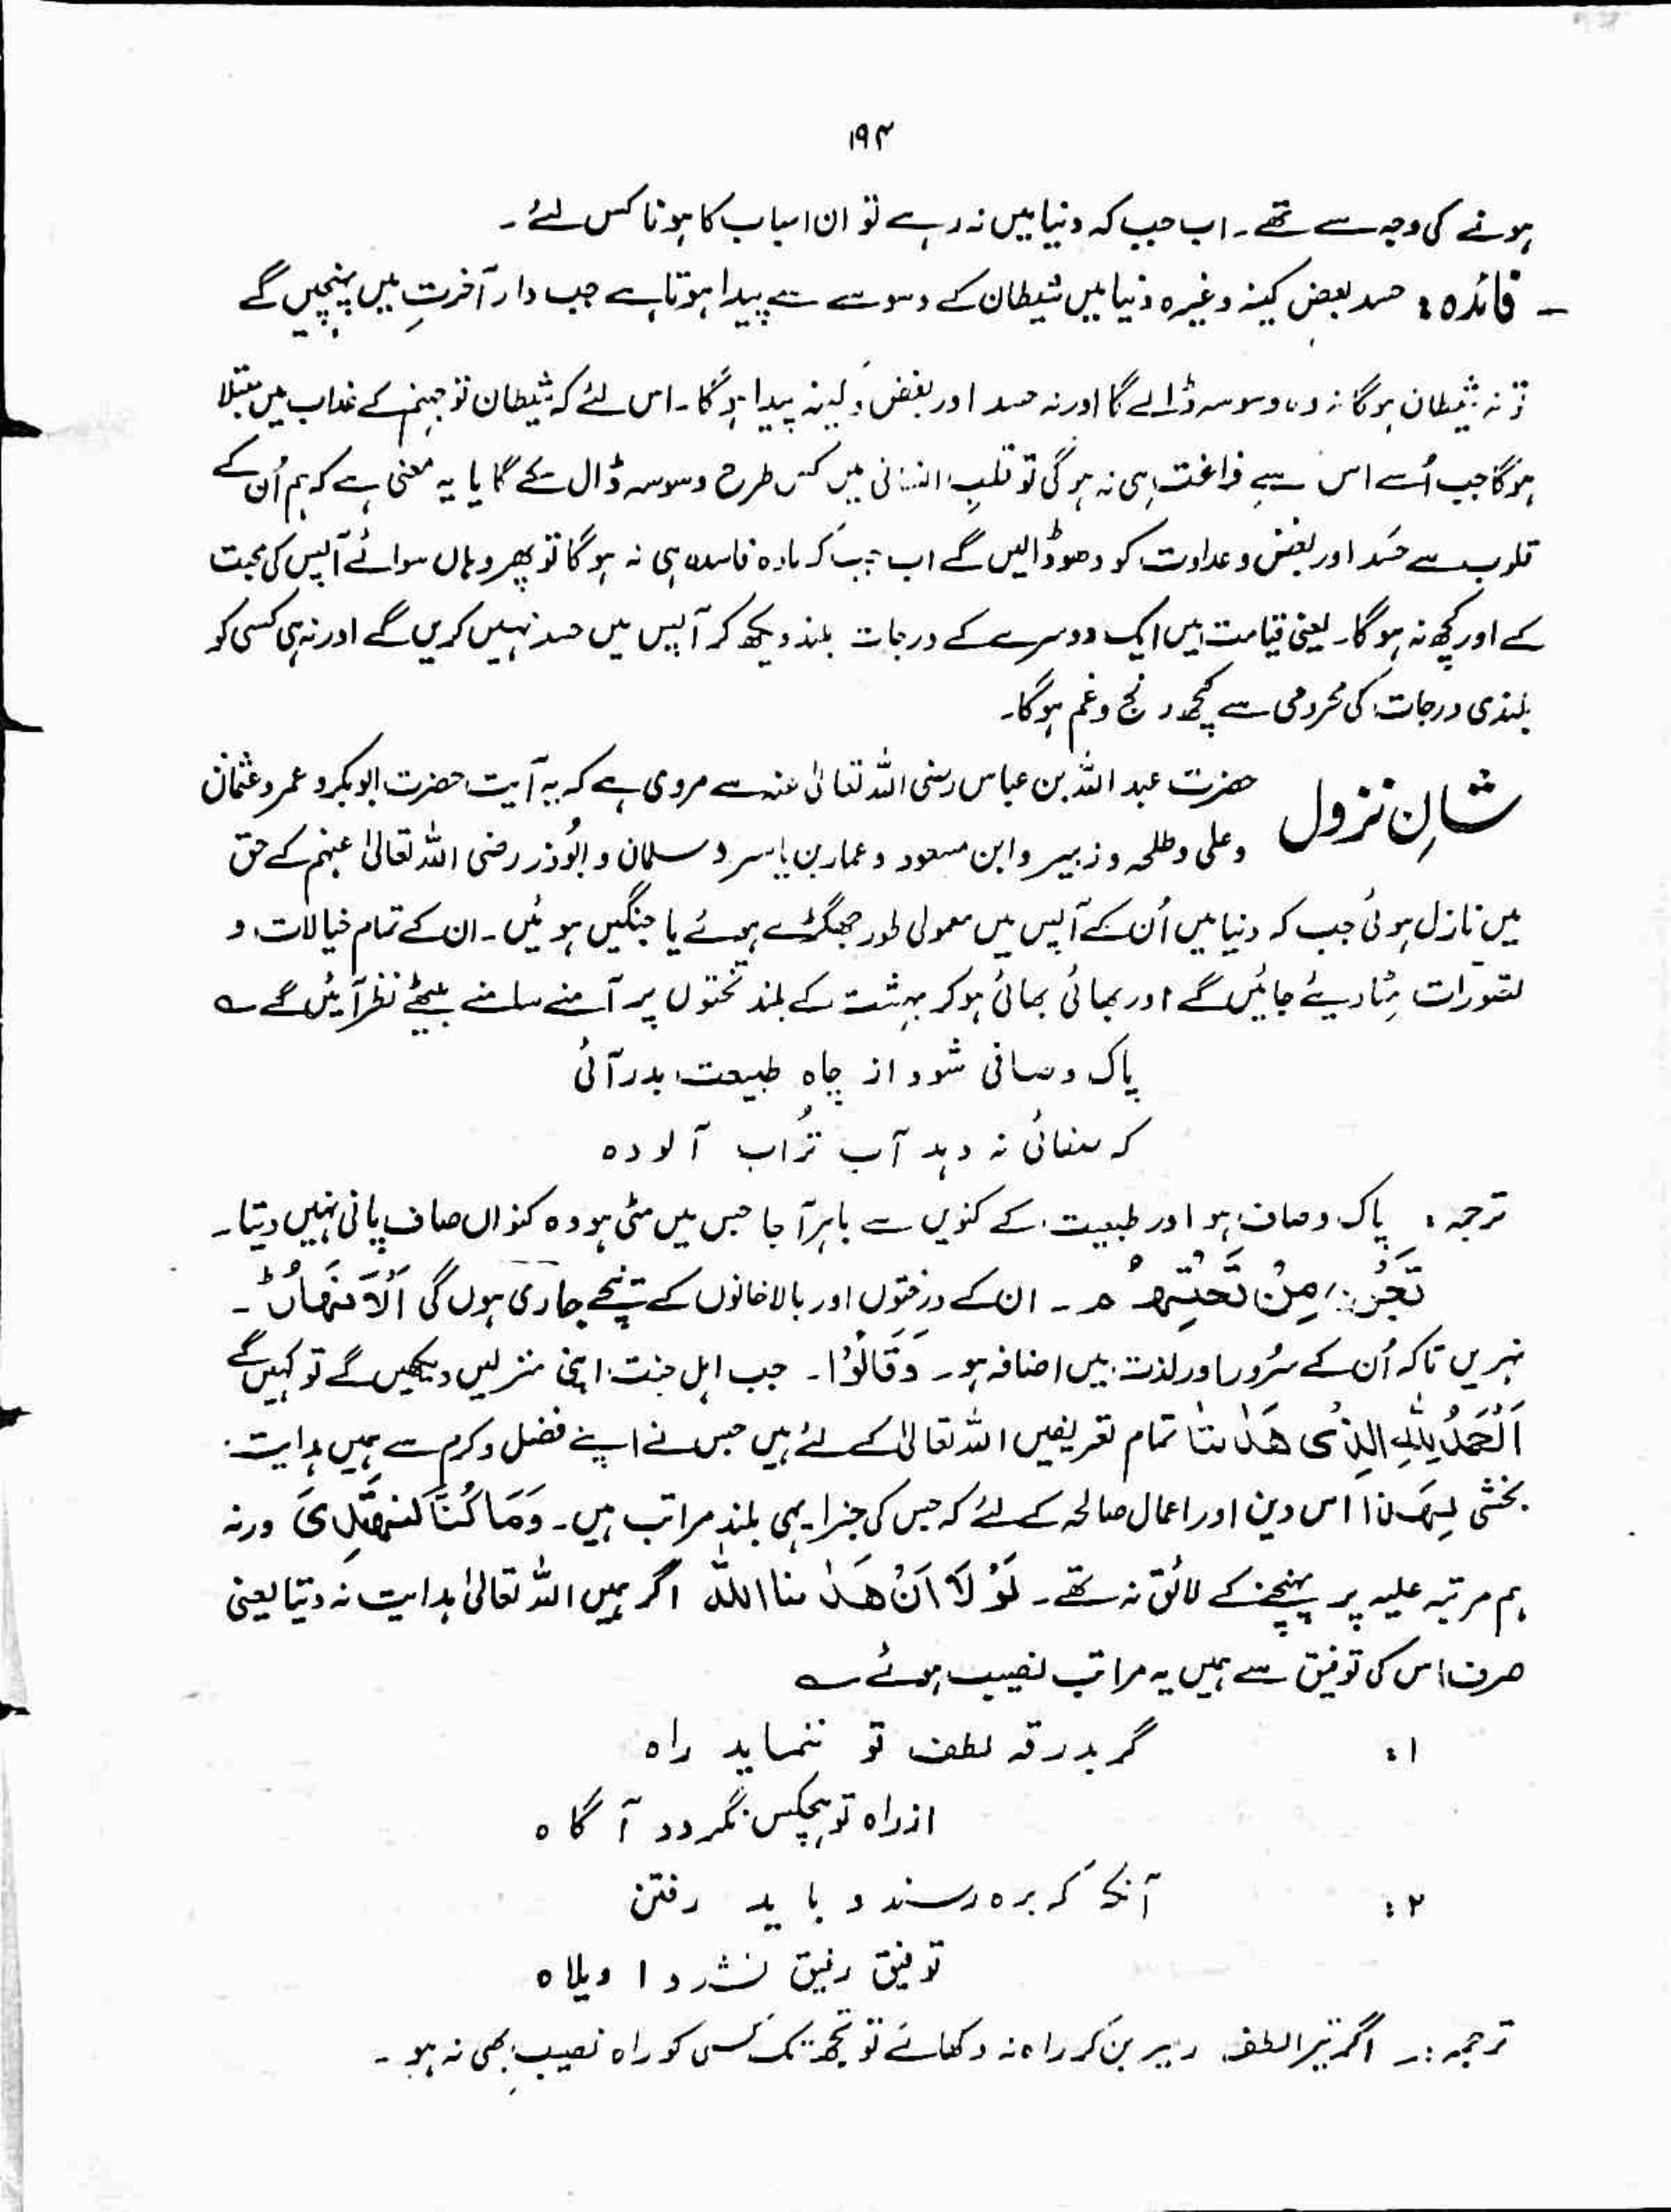 ۱۹۴
ہونے کی وجہ سے تھے ۔ اب جب کہ دنیا میں نہ رہے تو ان اسباب کا ہونا کس لئے ۔
۔ فائدہ : حسد بعض کینہ وغیرہ دنیا میں شیطان کے وسوسے سے پیدا ہوتا ہے جب دار آخرتِ میں پہنچیں گے
تو نہ شیطان ہوگا نہ وہ وسوسہ ڈالے گا اور نہ حسد اور بغض و کینہ پیدا ہو گا ۔ اس لئے کہ شیطان تو جہنم کے عذاب میں مبتلا
ہو گا جب اُسے اس سے فراغت ہی نہ ہو گی تو قلبِ انسانی میں کس طرح وسوسہ ڈال سکے گا یا یہ معنی ہے کہ ہم اُن کے
قلوب سے حسَد اور بغض و عداوت کو دھو ڈالیں گے اب جب کہ مادہ فاسدہ ہی نہ ہو گا تو پھر وہاں سوائے آپس کی محبت
کے اور کچھ نہ ہو گا ۔ یعنی قیامت میں ایک دوسرے کے درجات بلند دیکھ کر آپس میں حسد نہیں کریں گے اور نہ ہی کسی کو
بلندی درجات کی محرومی سے کچھ رنج و غم ہوگا ۔
شانِ نزول حضرت عبد اللہ بن عباس رضی اللہ تعالیٰ عنہ سے مروی ہے کہ یہ آیت حضرت ابوبکر و عمر و عثمان
و علی و طلحہ و زبیر و ابن مسعود و عمار بن یاسر و سلمان و ابُوذر رضی اللہ تعالیٰ عنہم کے حق
میں نازل ہوئی جب کہ دنیا میں اُن کے آپس میں معمولی طور جھگڑے ہوئے یا جنگیں ہوئیں ۔ ان کے تمام خیالات و
تصورات مِٹا دیئے جائیں گے اور بھائی بھائی ہو کر بہشت کے بلند تختوں پر آمنے سامنے بیٹھے نظر آئیں گے ؎
پاک و صافی شو و از چاہِ طبیعت بدر آئی
کہ صفائی نہ دہد آب تُراب آلودہ
ترجمہ : پاک و صاف ہو اور طبیعت کے کنویں سے باہر آ جا جس میں مٹی ہو وہ کنواں صاف پانی نہیں دیتا ۔
تَجْرِیْ مِنْ تَحْتِہِمُ ۔ ان کے درختوں اور بالا خانوں کے نیچے جاری ہوں گی اَلْاَنْہَارُ ۔
نہریں تاکہ اُن کے سُرور اور لذت میں اضافہ ہو ۔ وَقَالُوْا ۔ جب اہل جنت اپنی منزلیں دیکھیں گے تو کہیں گے
اَلْحَمْدُ لِلّٰہِ الَّذِیْ ھَدٰىنَا تمام تعریفیں اللہ تعالیٰ کے لئے ہیں جس نے اپنے فضل و کرم سے ہمیں ہدایت
بخشی لِہٰذَا اس دین اور اعمال صالحہ کے لئے کہ جس کی جزا یہی بلند مراتب ہیں ۔ وَمَا کُنَّا لِنَہْتَدِیَ ورنہ
ہم مرتبہ علیہ پر پہنچنے کے لائق نہ تھے ۔ لَوْ لَا اَنْ ھَدٰىنا اللّٰہُ اگر ہمیں اللہ تعالیٰ ہدایت نہ دیتا یعنی
صرف اس کی توفیق سے ہمیں یہ مراتب نصیب ہوئے ؎
۱: گر بدرقہ لطف تو ننماید راہ
از راہ تو ہیچکس نگردد آگاہ
۲: آنکہ کہ برہ رسند و باید رفتن
توفیق رفیق نشد وا ویلاہ
ترجمہ :۔ اگر تیرا لطف رہبر بن کر راہ نہ دکھائے تو تجھ تک کسی کو راہ نصیب بھی نہ ہو ۔